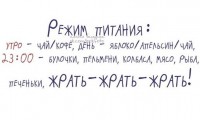 Режим питания:
утро – чай/кофе, день – яблоко/апельсин/чай,
23:00 – булочки, пельмени, колбаса, мясо, рыба,
печеньки, жрать-жрать-жрать!